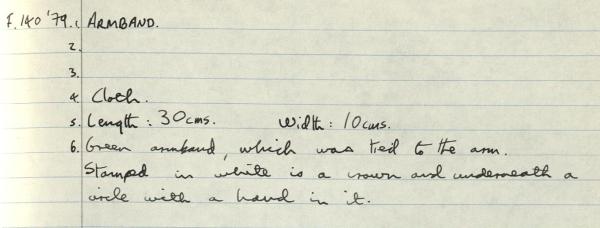 F.140 '79. 1. ARMBAND.
2.
3.
4. Cloth.
5. Length: 30cms. Width: 10cms.
6. Green armband, which was tied to the arm.
Stamped in white is a crown and underneath a
circle with a hand in it.